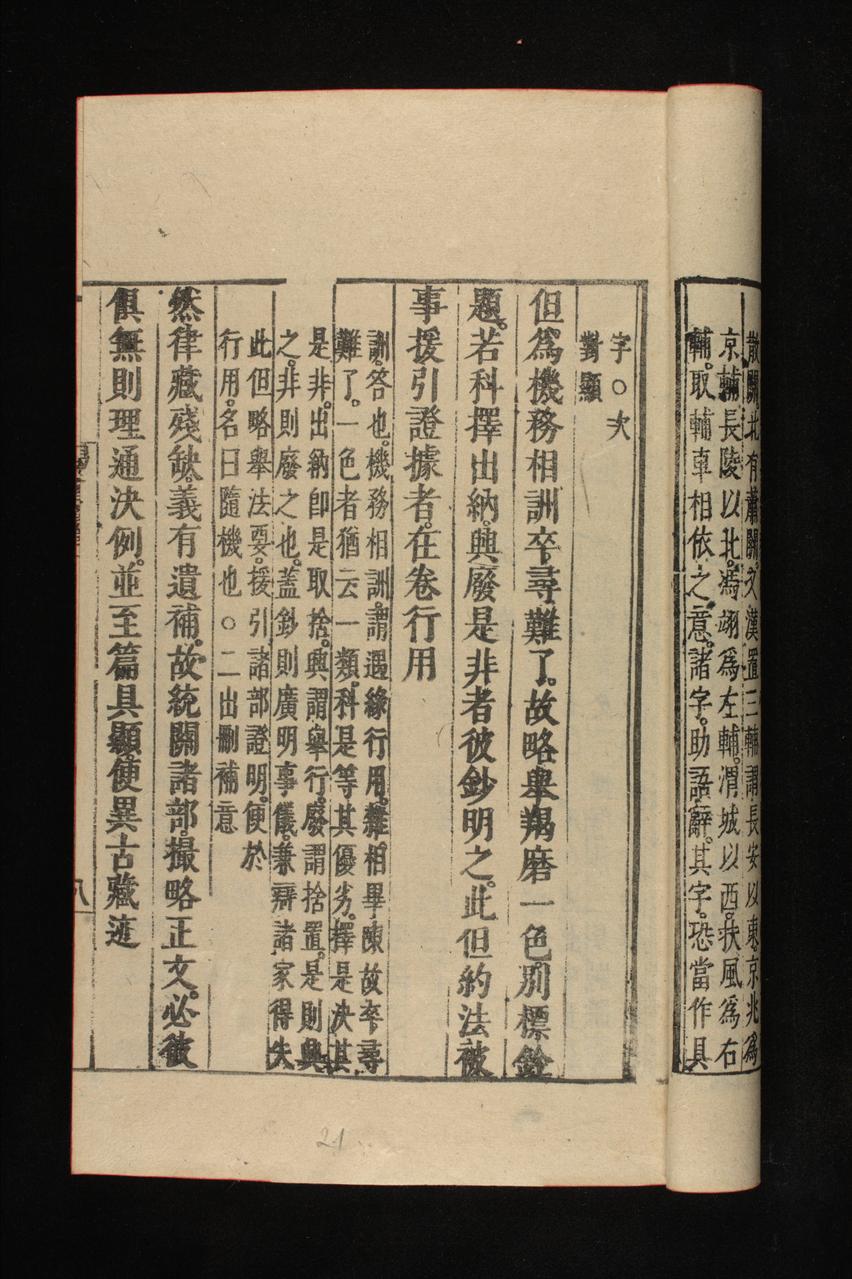 散關北有蕭關又漢置三輔謂長安以東京兆為
京輔長陵以北馮翊為左輔渭城以西扶風為右
輔取輔車相依之意諸字助語辭其字恐當作具
字○次
對顯
但為機務相詶卒尋難了故略舉羯磨一色別標銓
題若科擇出納興廢是非者彼鈔明之此但約法被
事援引證據者在卷行用
詶答也機務相詶謂遇緣行用雜相畢陳故卒尋
難了一色者猶云一類科是等其優劣擇是決其
是非出納即是取捨興謂舉行廢謂捨置是則興
之非則廢之也蓋鈔則廣明事儀兼辯諸家得失
此但略舉法要援引諸部證明便於
行用名曰隨機也○二出刪補意
然律藏殘缺義有遺補故統關諸部撮略正文必彼
俱無則理通決例並至篇具顯便異古藏迹
八
21